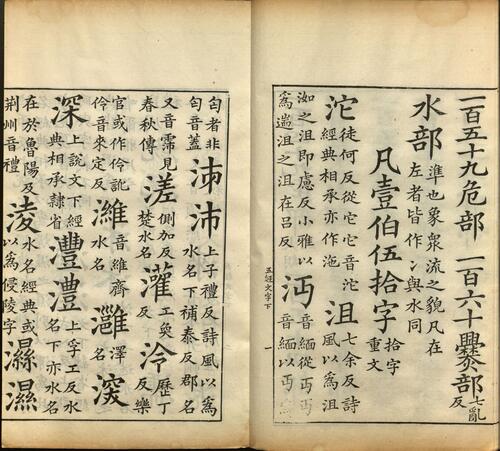 一百五十九危部 一百六十爨部 七亂反
水部 準也象衆流之貌凡在左者皆作氵與水同
凡壹伯伍拾字 拾字重文
沱 徒何反從它它音沱經典相承亦作池 沮 七余反詩風以爲
洳之沮即慮反小雅以爲遄沮之沮在呂反 沔 音緬從丏丏音緬以丏
五經文字下 一
匄者非匄音蓋 泲沛 上子禮反詩風以爲水名下補泰反郡名
又音霈見春秋傳 溠 側加反楚水名 灌 工奐反 泠 歷丁反樂
官或作伶訛伶音來定反 濰 音維齊水名 灉 澤名
深 上說文下經典相承隸省 灃澧 上孚工反水名下亦水名
在於魯陽及荊州音禮 淩 水名經典或以爲侵陵字 濕